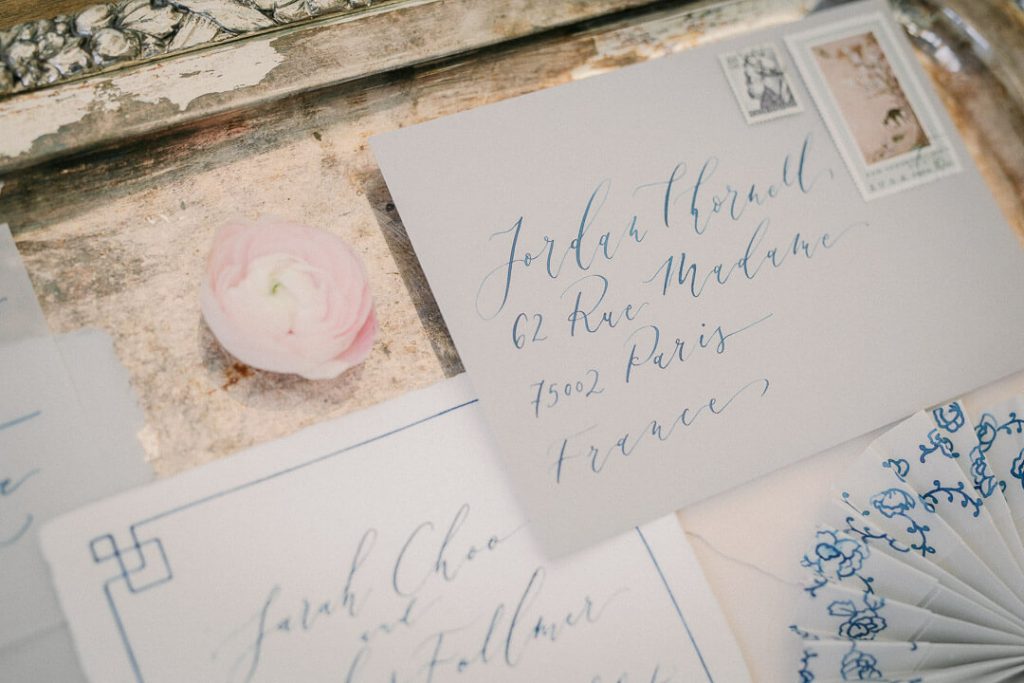 Jordan Thornell,
62 Rue Madame
75002 Paris
France,
Sarah Choo
and
Follmer